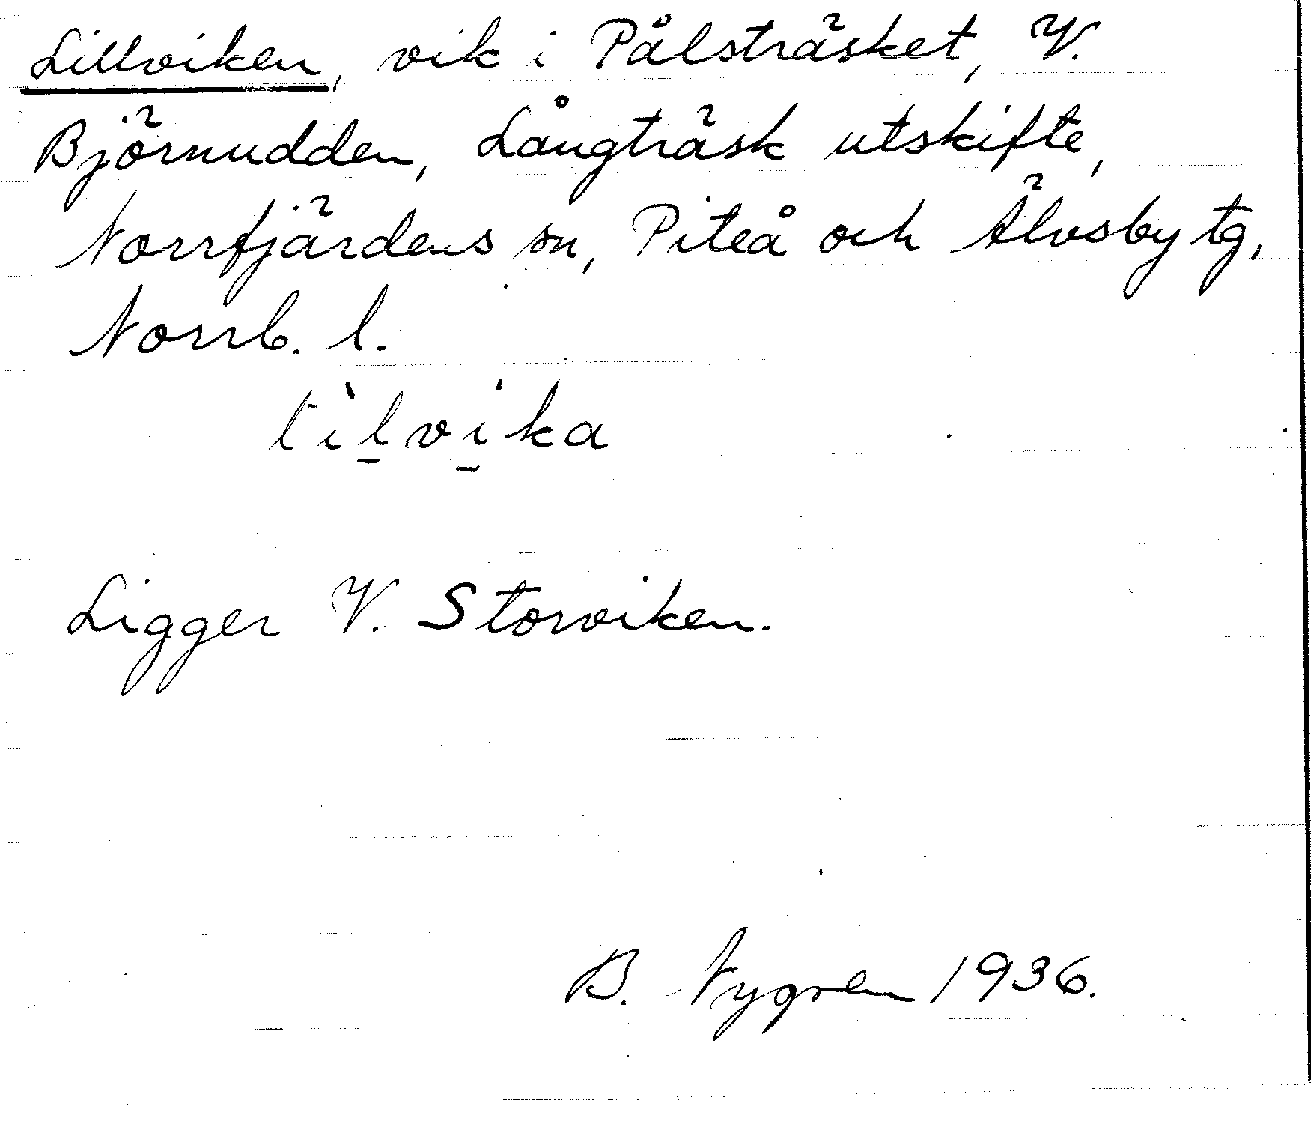 Lillviken, vik i Pålsträsket, V.
Björnudden, Långträsk utskifte,
Norrfjärdens sn, Piteå och Älvsby tg,
Norrb. l.
lìl̠vi̠ka
Ligger V. Storviken.
B. Nygren 1936.